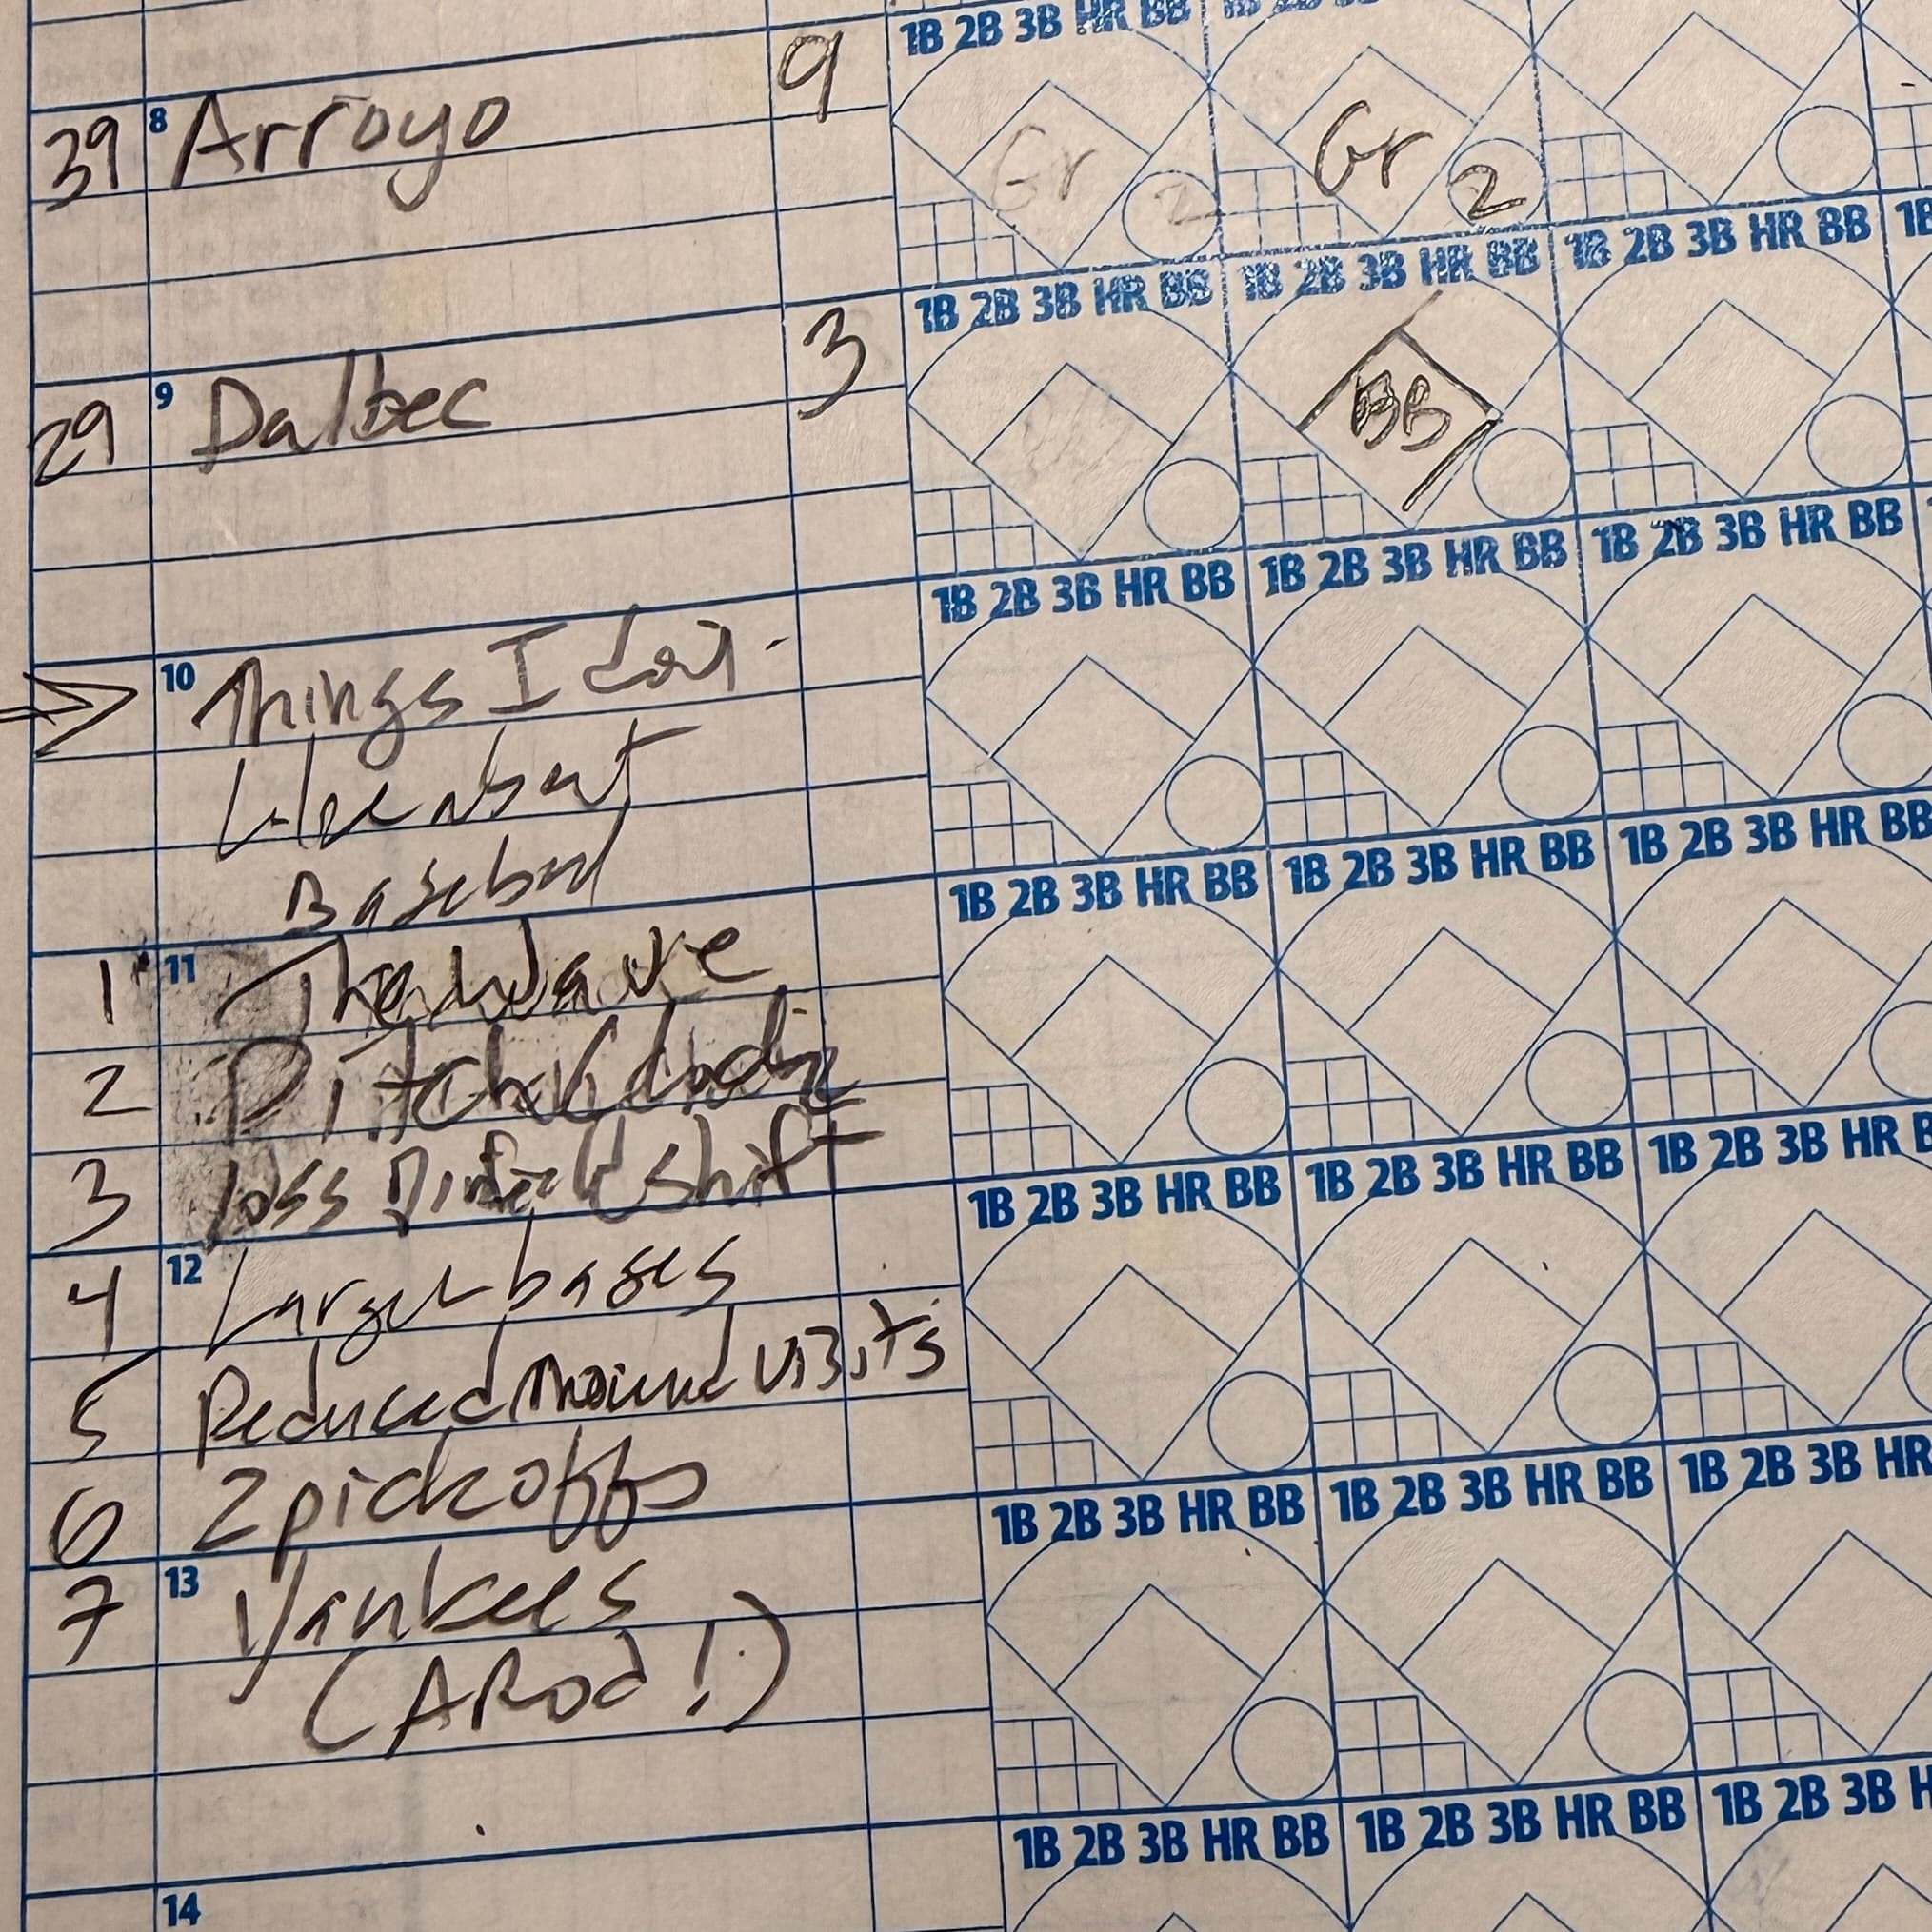 1B 2B 3B HR BB
39 8 Arroyo 9 Gr 2 Gr 2
1B 2B 3B HR BB 1B 2B 3B HR BB 1B 2B 3B HR BB 1B
29 9 Dalbec 3 BB
1B 2B 3B HR BB 1B 2B 3B HR BB 1B 2B 3B HR BB
10 Things I don't
like about
Baseball
1B 2B 3B HR BB 1B 2B 3B HR BB 1B 2B 3B HR BB
1 11 The Wave
2 Pitch Clock
3 loss Infield shift
1B 2B 3B HR BB 1B 2B 3B HR BB 1B 2B 3B HR B
4 12 Larger bases
5 Reduced mound visits
6 2 pickoffs
1B 2B 3B HR BB 1B 2B 3B HR BB 1B 2B 3B HR
7 13 Yankees
(ARod!)
1B 2B 3B HR BB 1B 2B 3B HR BB 1B 2B 3B H
14